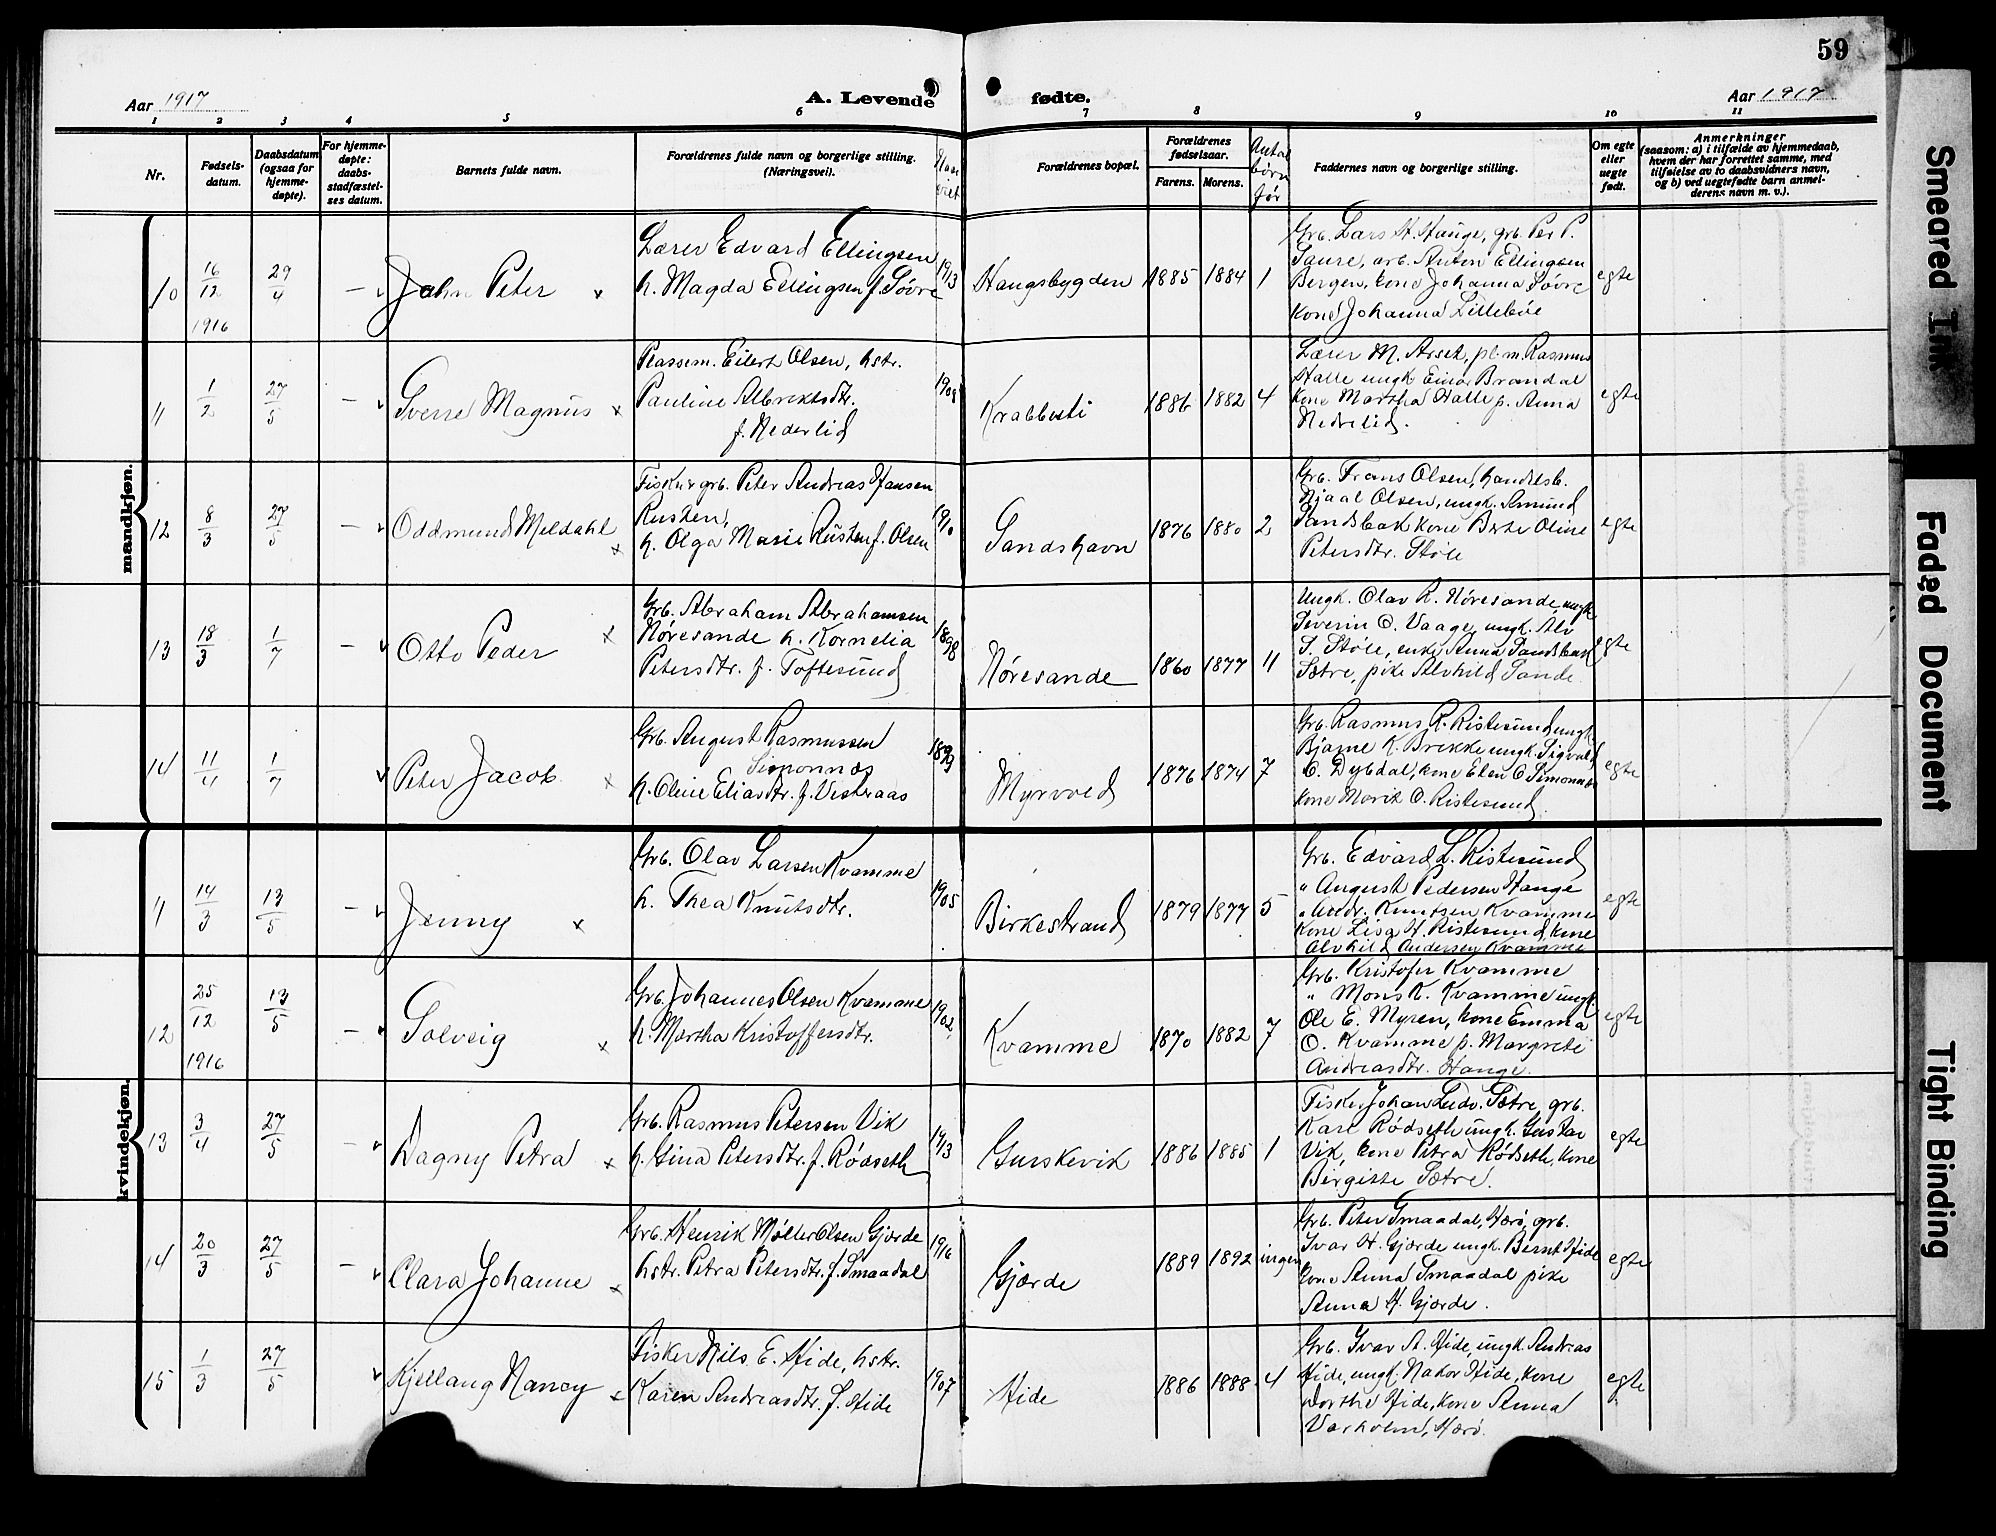 59
Aar 1917 A. Levende fødte. Aar 1917
1 2 3 4 5 6 7 8 9 10 11
Nr. Fødsels-datum. Daabsdatum (ogsaa for hjemme-døpte). For hjemme-døpte: daabs-stadfæstel-ses datum. Barnets fulde navn. Forældrenes fulde navn og borgerlige stilling. (Næringsvei). Forældrenes bopæl. Forældrenes fødselsaar. Farens. Morens. Antal børn før Faddernes navn og borgerlige stilling. Om egte eller uegte født. Anmerkninger (saasom: a) i tilfælde av hjemmedaab, hvem der har forrettet samme, med tilføielse av to daabsvidners navn, og b) ved uegtefødte barn anmel-derens navn m. v.).
mandkjøn.
10 16/12 1916 29/4 — John Peter x
Lærer Edvard Ellingsen
h. Magda Ellingsen f. Søvre
1913 Haugsbygden 1885 1884 1
Grb. Lars H. Hauge, grb. Per P.
Saure, arb. Anton Ellingsen
Bergen, kone Johanna Søvre
kone Johanna Lillebøe
egte
11 1/2 27/5 — Sverre Magnus x
Plassem. Eilert Olsen, hstr.
Pauline Albrektsdtr.
f. Nederlid
1908 Krabbesti 1886 1882 4
Lærer M. Arset, pl.m. Rasmus
Halle ungk. Einar Brandal
kone Martha Halle p. Anna
Nedrelid.
egte
12 8/3 27/5 — Oddmund Meldahl x
Fisker grb. Peter Andreas Hansen
Rusten,
h. Olga Marie Rusten f. Olsen
1910 Sandshavn 1876 1880 2
Grb. Frans Olsen, handelsb.
Njaal Olsen, ungk. Amund
Sandsbak kone Berte Oline
Petersdtr. Støle
egte
13 18/3 1/7 — Otto Peder x
Grb. Abraham Abrahamsen
Nøresande h. Kornelia
Petersdtr. f. Toftesund
1898 Nøresande 1860 1877 11
Ungk. Olav R. Nøresande ungk.
Severin O. Vaage, ungk. Alv
S. Støle, enke Anna Sandsbak
Sætre, pike Alvhild Sande
egte
14 11/4 1/7 Peter Jacob x
Grb. August Rasmussen
Simonnæs
h. Oline Eliasdtr. f. Vestraas
1899 Myrvold 1876 1874 7
Grb. Rasmus R. Ristesund ungk.
Bjarne K. Brekke ungk. Sigvald
C. Dybdal, kone Elen O. Simonnæs
kone Marit O. Ristesund
egte
kvindekjøn.
11 14/3 13/5 — Jenny x
Grb. Olav Larsen Kvamme
h. Thea Knutsdtr.
1905 Birkestrand 1879 1877 5
Grb. Edvard L. Ristesund
" August Pedersen Hauge
" Andr. Knutsen Kvamme
kone Lisa H. Ristesund, kone
Alvhild Andersen Kvamme
egte
12 25/12 1916 13/5 — Solveig x
Grb. Johannes Olsen Kvamme
h. Martha Kristoffersdtr.
1902 Kvamme 1870 1882 7
Grb. Kristofer Kvamme
" Mons K. Kvamme ungk.
Ole E. Myren, kone Emma
O. Kvamme p. Margrete
Andreasdtr. Hauge.
egte
13 3/4 27/5 — Dagny Petra x
Grb. Rasmus Petersen Vik
h. Gina Petersdtr. f. Rødseth
1913 Gurskevik 1886 1885 1
Fisker Johan Ludv. Sætre, grb.
Karl Rødseth ungk. Gustav
Vik, kone Petra Rødseth, kone
Birgitte Sætre.
egte
14 20/3 27/5 — Clara Johanne x
Grb. Henrik Møller Olsen Gjærde
hstr. Petra Petersdtr. f. Smaadal
1916 Gjærde 1889 1892 ingen
Grb. Peter Smaadal, Herø, grb.
Ivar H. Gjærde ungk. Bernt Hide
kone Anna Smaadal pike
Anna H. Gjærde.
egte
15 1/3 27/5 Kjellaug Nancy x
Fisker Nils E. Hide, hstr.
Karen Andreasdtr. f. Hide
1907 Hide 1886 1888 4
Grb. Ivar A. Hide, ungk. Andreas
Hide, ungk. Nakor Hide, kone
Dorthe Hide, kone Anna
Varholm, Herø.
egte
Smeared Ink
Faded Document
Tight Binding